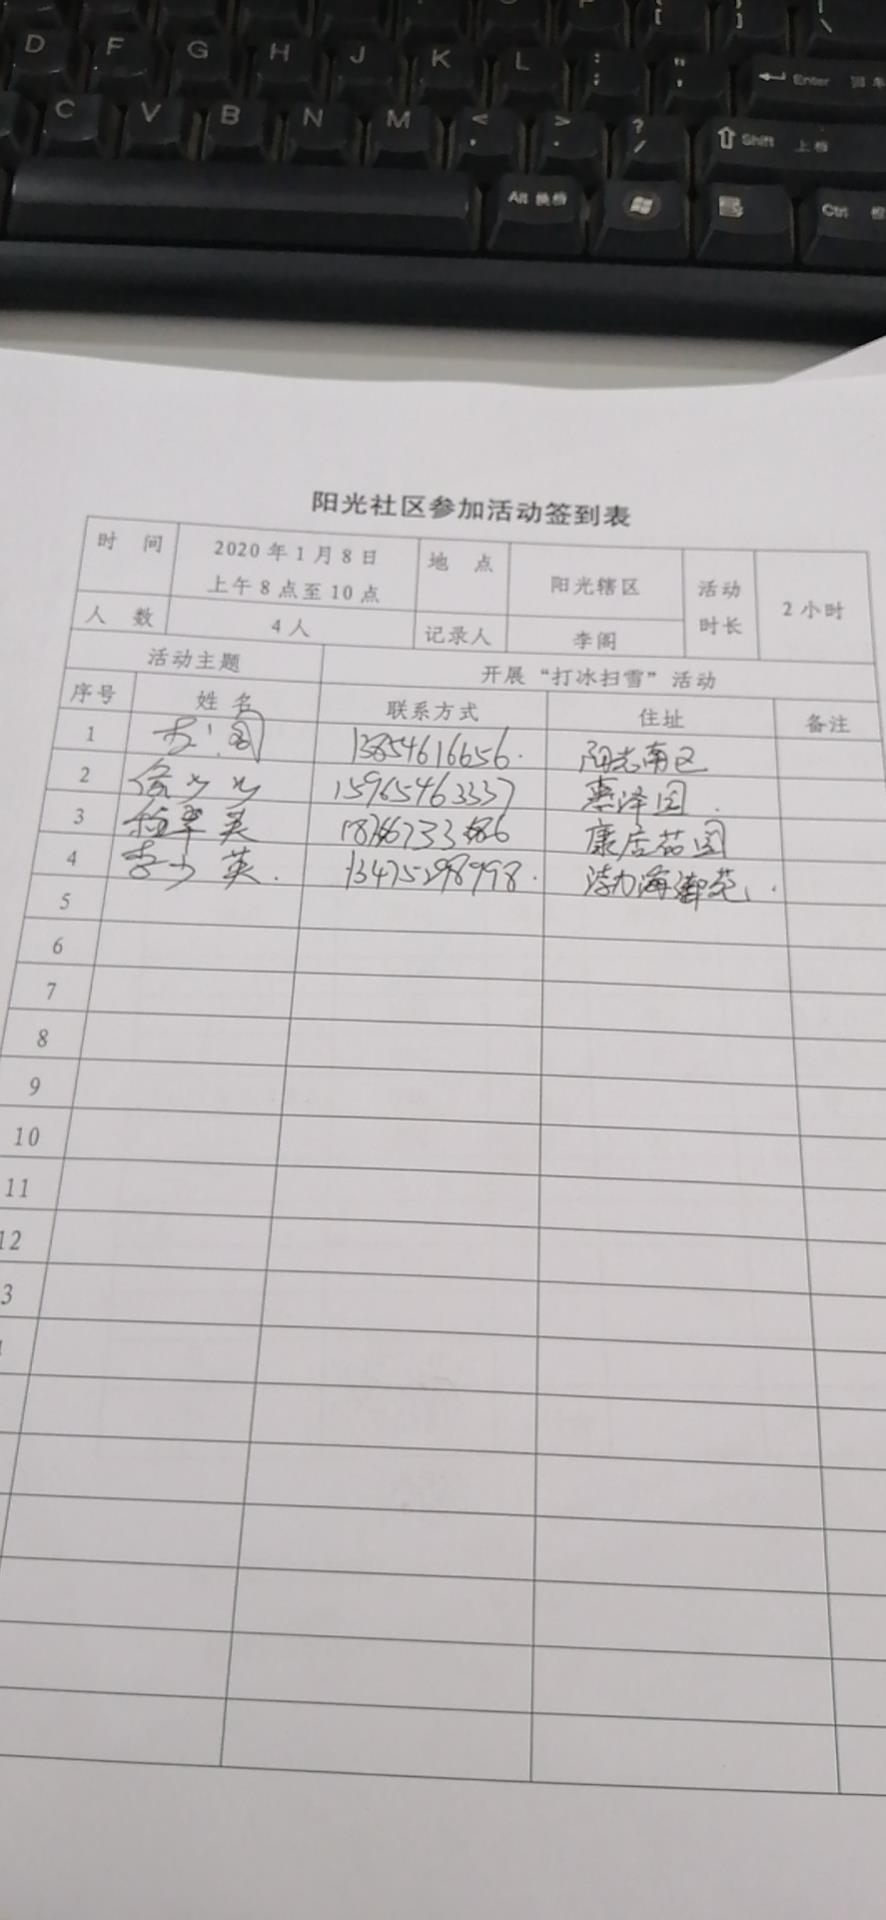 D F G H J K L : ; " ' Enter 回车
C V B N M < , > . ? / Shift 上档
Alt 换档 Ctrl
阳光社区参加活动签到表
时 间 2020年1月8日 上午8点至10点 地 点 阳光辖区 活动时长 2小时
人 数 4人 记录人 李阁
活动主题 开展“打冰扫雪”活动
序号 姓名 联系方式 住址 备注
1 13854616656 阳光南区
2 15965463337 惠泽园
3 康居花园
4 李少英 13475298998 渤海御苑
5
6
7
8
9
10
11
12
3